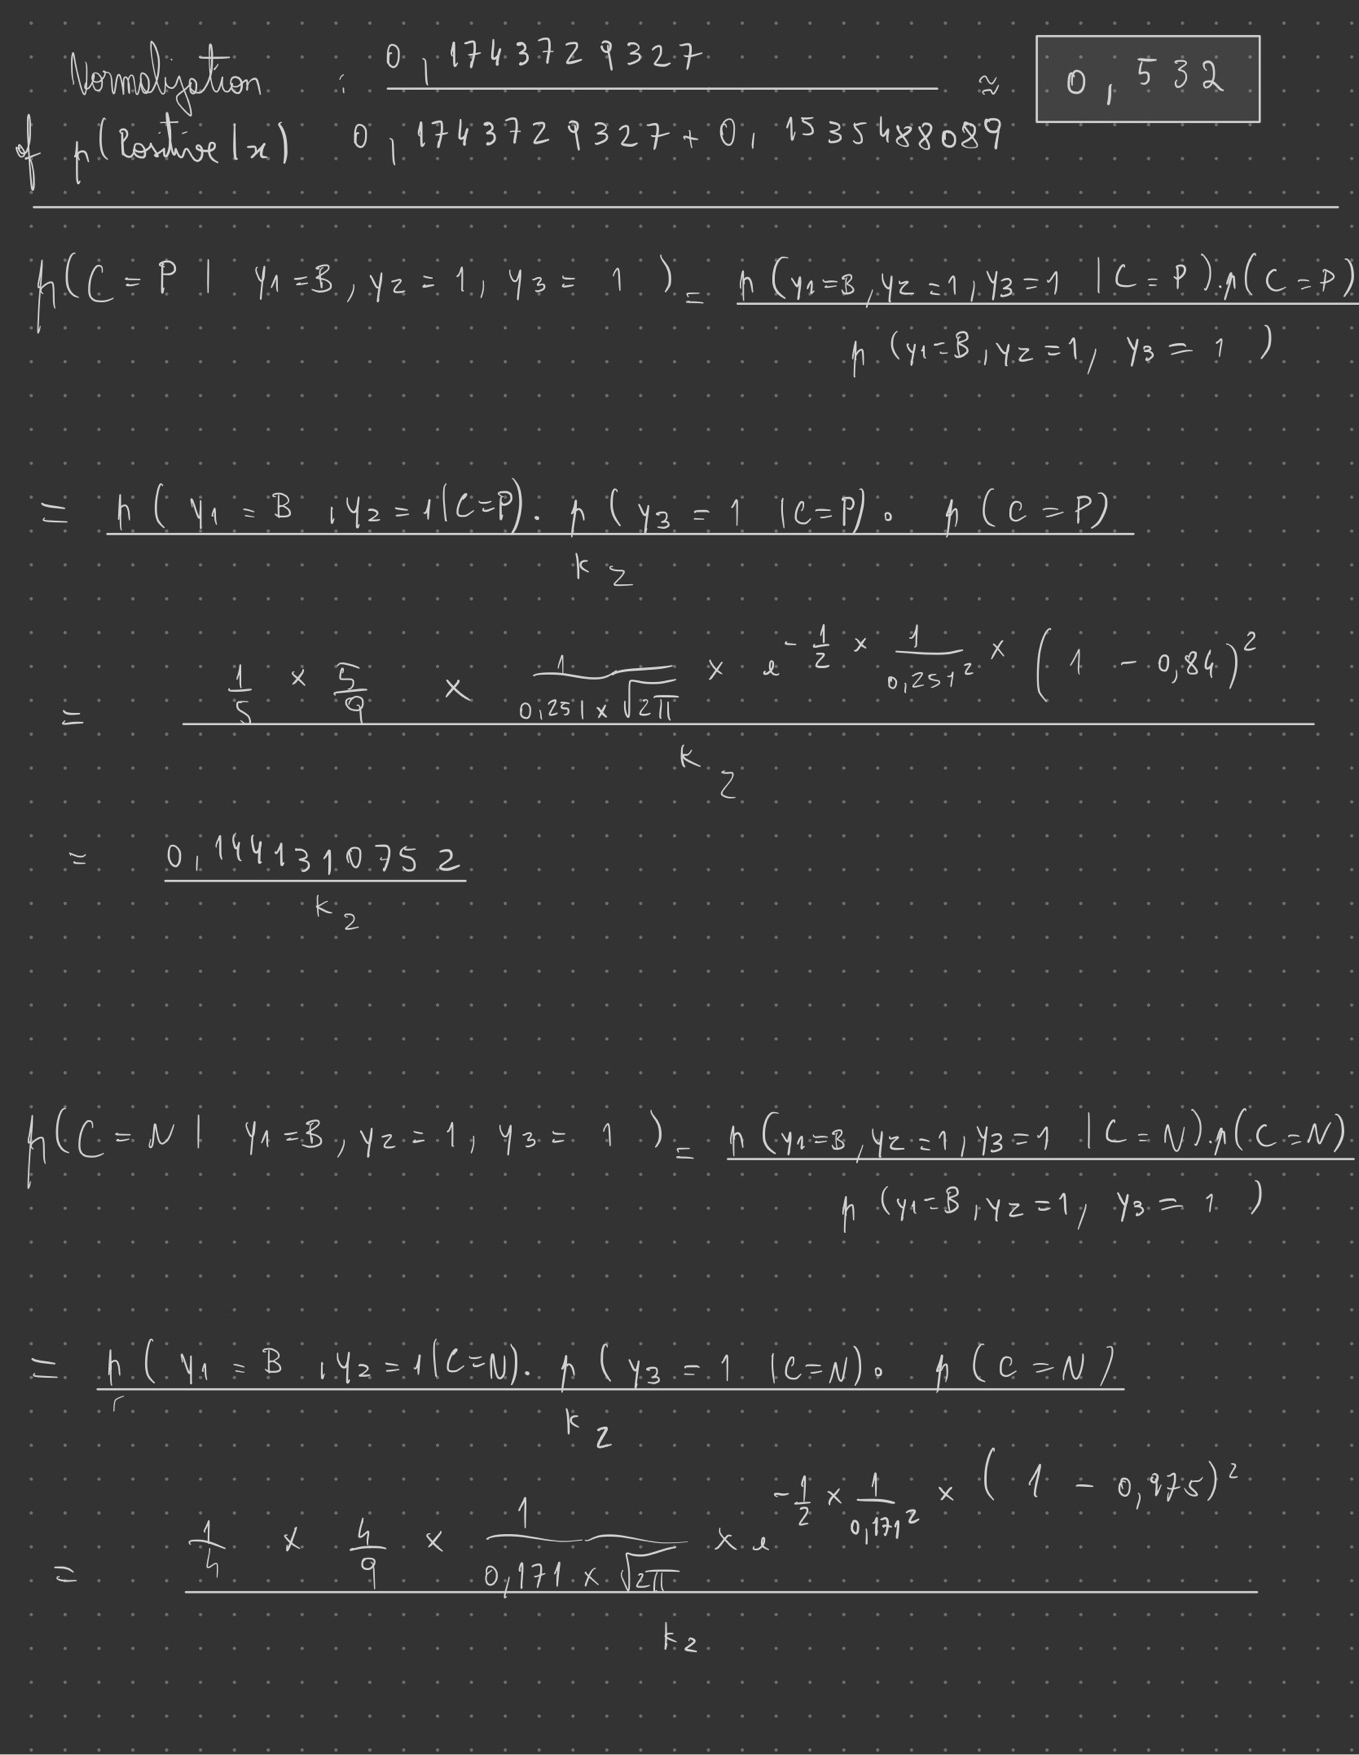 Normalization : 0,1743729327 / 0,1743729327 + 0,1535488089 ≈ 0,532
of p(Positive|x)
p(C=P | y1=B, y2=1, y3=1) = p(y1=B, y2=1, y3=1 | C=P).p(C=P)
p(y1=B, y2=1, y3=1)
= p(y1=B, y2=1|C=P). p(y3=1 |C=P). p(C=P)
k2
= 1/5 × 5/9 × 1/(0,251 × √2π) × e^(-1/2 × 1/0,251² × (1 - 0,84)²)
k2
= 0,1441310752
k2
p(C=N | y1=B, y2=1, y3=1) = p(y1=B, y2=1, y3=1 | C=N).p(C=N)
p(y1=B, y2=1, y3=1)
= p(y1=B, y2=1|C=N). p(y3=1 |C=N). p(C=N)
k2
= 1/4 × 4/9 × 1/(0,171 × √2π) × e^(-1/2 × 1/0,171² × (1 - 0,975)²)
k2